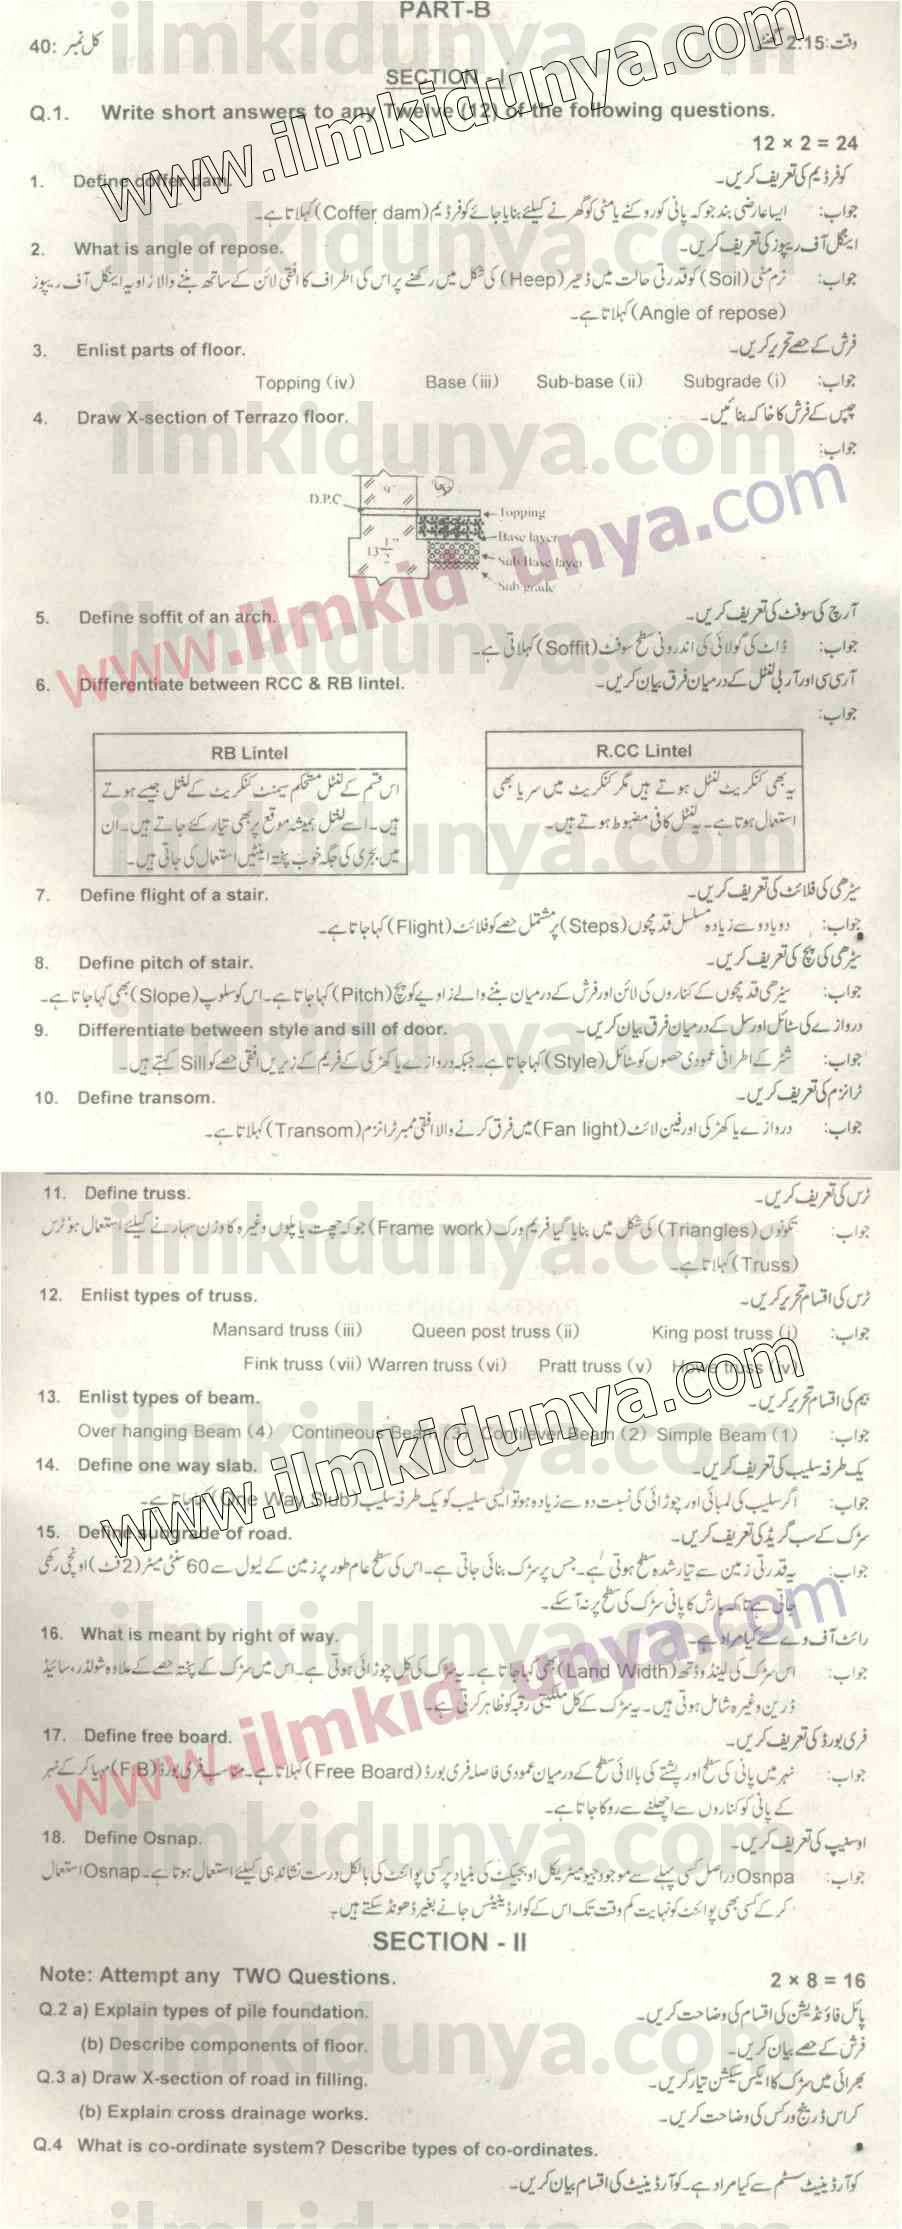 PART-B
وقت: 2.15 گھنٹے
کل نمبر: 40
SECTION - I
Q.1. Write short answers to any Twelve (12) of the following questions.
12 × 2 = 24
1. Define coffer dam. کوفر ڈیم کی تعریف کریں۔
جواب: ایسا عارضی بند جو کہ پانی کو روکنے یا مٹی کو گھرنے کیلئے بنایا جائے کوفر ڈیم (Coffer dam) کہلاتا ہے۔
2. What is angle of repose. اینگل آف ریپوز کی تعریف کریں۔
جواب: نرم مٹی (Soil) کو قدرتی حالت میں ڈھیر (Heep) کی شکل میں رکھنے پر اس کی اطراف کا افقی لائن کے ساتھ بننے والا زاویہ اینگل آف ریپوز
(Angle of repose) کہلاتا ہے۔
3. Enlist parts of floor. فرش کے حصے تحریر کریں۔
جواب: Subgrade (i) Sub-base (ii) Base (iii) Topping (iv)
4. Draw X-section of Terrazo floor. چپس کے فرش کا خاکہ بنائیں۔
جواب:
9"
D.P.C
Topping
Base layer
13 1/2"
Sub Base layer
Sub grade
5. Define soffit of an arch. آرچ کی سوفٹ کی تعریف کریں۔
جواب: ڈاٹ کی گولائی کی اندرونی سطح سوفٹ (Soffit) کہلاتی ہے۔
6. Differentiate between RCC & RB lintel. آر سی سی اور آر بی لنٹل کے درمیان فرق بیان کریں۔
جواب:
R.CC Lintel
یہ بھی کنکریٹ لنٹل ہوتے ہیں مگر کنکریٹ میں سریا بھی
استعمال ہوتا ہے۔ یہ لنٹل کافی مضبوط ہوتے ہیں۔
RB Lintel
اس قسم کے لنٹل مستحکم سیمنٹ کنکریٹ کے لنٹل جیسے ہوتے
ہیں۔ اسے لنٹل ہمیشہ موقع پر بھی تیار کئے جاتے ہیں۔ ان
میں بجری کی جگہ خوب پختہ اینٹیں استعمال کی جاتی ہیں۔
7. Define flight of a stair. سیڑھی کی فلائٹ کی تعریف کریں۔
جواب: دو یا دو سے زیادہ مسلسل قدمچوں (Steps) پر مشتمل حصے کو فلائٹ (Flight) کہا جاتا ہے۔
8. Define pitch of stair. سیڑھی کی پچ کی تعریف کریں۔
جواب: سیڑھی قدمچوں کے کناروں کی لائن اور فرش کے درمیان بننے والے زاویے کو پچ (Pitch) کہا جاتا ہے۔ اس کو سلوپ (Slope) بھی کہا جاتا ہے۔
9. Differentiate between style and sill of door. دروازے کی سٹائل اور سل کے درمیان فرق بیان کریں۔
جواب: شٹر کے اطرافی عمودی حصوں کو سٹائل (Style) کہا جاتا ہے۔ جبکہ دروازے یا کھڑکی کے فریم کے زیریں افقی حصے کو Sill کہتے ہیں۔
10. Define transom. ٹرانزم کی تعریف کریں۔
جواب: دروازے یا کھڑکی اور فین لائٹ (Fan light) میں فرق کرنے والا افقی ممبر ٹرانزم (Transom) کہلاتا ہے۔
11. Define truss. ٹرس کی تعریف کریں۔
جواب: تکونوں (Triangles) کی شکل میں بنایا گیا فریم ورک (Frame work) جو کہ چھت یا پلوں وغیرہ کا وزن سہارنے کیلئے استعمال ہو ٹرس
(Truss) کہلاتا ہے۔
12. Enlist types of truss. ٹرس کی اقسام تحریر کریں۔
جواب: King post truss (i) Queen post truss (ii) Mansard truss (iii)
Howe truss (iv) Pratt truss (v) Warren truss (vi) Fink truss (vii)
13. Enlist types of beam. بیم کی اقسام تحریر کریں۔
جواب: Simple Beam (1) Contilever Beam (2) Contineous Beam (3) Over hanging Beam (4)
14. Define one way slab. یک طرفہ سلیب کی تعریف کریں۔
جواب: اگر سلیب کی لمبائی اور چوڑائی کی نسبت دو سے زیادہ ہو تو ایسی سلیب کو یک طرفہ سلیب (One Way Slub) کہا جاتا ہے۔
15. Define subgrade of road. سڑک کے سب گریڈ کی تعریف کریں۔
جواب: یہ قدرتی زمین سے تیار شدہ سطح ہوتی ہے۔ جس پر سڑک بنائی جاتی ہے۔ اس کی سطح عام طور پر زمین کے لیول سے 60 سنٹی میٹر (2 فٹ) اونچی رکھی
جاتی ہے تاکہ بارش کا پانی سڑک کی سطح پر نہ آ سکے۔
16. What is meant by right of way. رائٹ آف وے سے کیا مراد ہے۔
جواب: اس سڑک کی لینڈ وڈتھ (Land Width) بھی کہا جاتا ہے۔ یہ سڑک کی کل چوڑائی ہوتی ہے۔ اس میں سڑک کے پختہ حصے کے علاوہ شولڈر، سائیڈ
ڈرین وغیرہ شامل ہوتی ہیں۔ یہ سڑک کے کل ملکیتی رقبہ کو ظاہر کرتی ہے۔
17. Define free board. فری بورڈ کی تعریف کریں۔
جواب: نہر میں پانی کی سطح اور پشتے کی بالائی سطح کے درمیان عمودی فاصلہ فری بورڈ (Free Board) کہلاتا ہے۔ مناسب فری بورڈ (F.B) مہیا کر کے نہر
کے پانی کو کناروں سے اچھلنے سے روکا جاتا ہے۔
18. Define Osnap. اوسنیپ کی تعریف کریں۔
جواب: Osnpa دراصل کسی پہلے سے موجود جیومیٹریکل اوبجیکٹ کی بنیاد پر کسی پوائنٹ کی بالکل درست نشاندہی کیلئے استعمال ہوتا ہے۔ Osnap استعمال
کر کے کسی بھی پوائنٹ کو نہایت کم وقت تک اس کے کوارڈینیٹس جانے بغیر ڈھونڈ سکتے ہیں۔
SECTION - II
Note: Attempt any TWO Questions. 2 × 8 = 16
Q.2 a) Explain types of pile foundation. پائل فاؤنڈیشن کی اقسام کی وضاحت کریں۔
(b) Describe components of floor. فرش کے حصے بیان کریں۔
Q.3 a) Draw X-section of road in filling. بھرائی میں سڑک کا ایکس سیکشن تیار کریں۔
(b) Explain cross drainage works. کراس ڈرینج ورکس کی وضاحت کریں۔
Q.4 What is co-ordinate system? Describe types of co-ordinates.
کوآرڈینیٹ سسٹم سے کیا مراد ہے۔ کوآرڈینیٹ کی اقسام بیان کریں۔
www.ilmkidunya.com
www.ilmkidunya.com
www.ilmkidunya.com
www.ilmkidunya.com